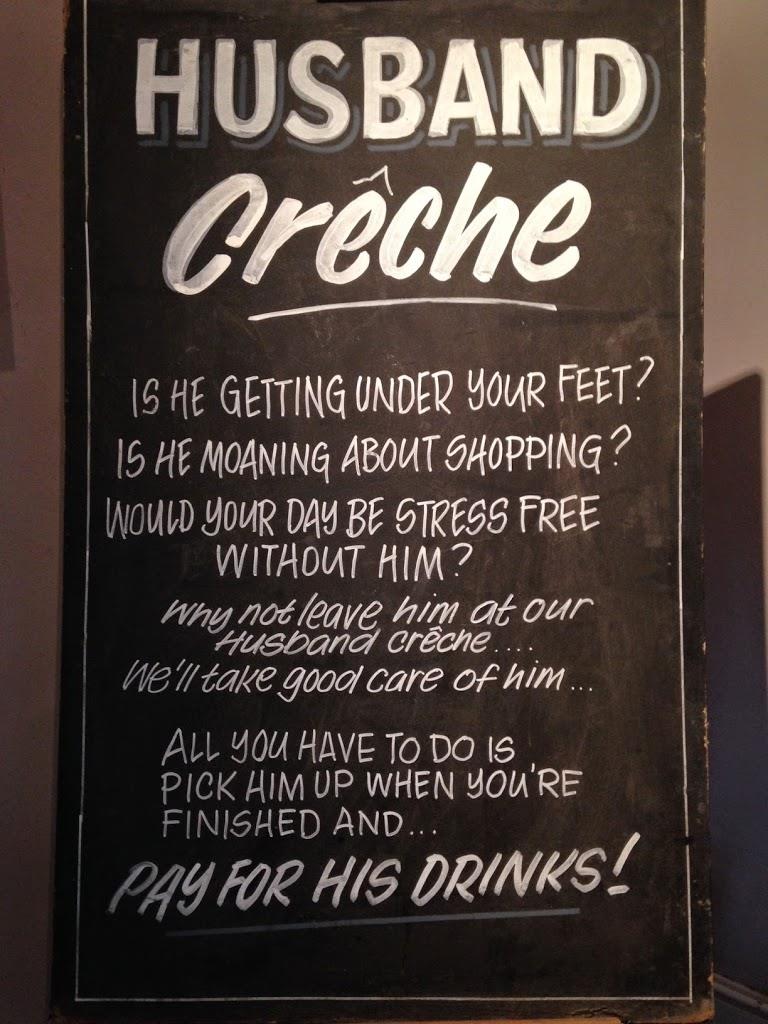 HUSBAND
Crêche
IS HE GETTING UNDER YOUR FEET?
IS HE MOANING ABOUT SHOPPING?
WOULD YOUR DAY BE STRESS FREE
WITHOUT HIM?
Why not leave him at our
Husband crêche....
We'll take good care of him...
ALL YOU HAVE TO DO IS
PICK HIM UP WHEN YOU'RE
FINISHED AND...
PAY FOR HIS DRINKS!